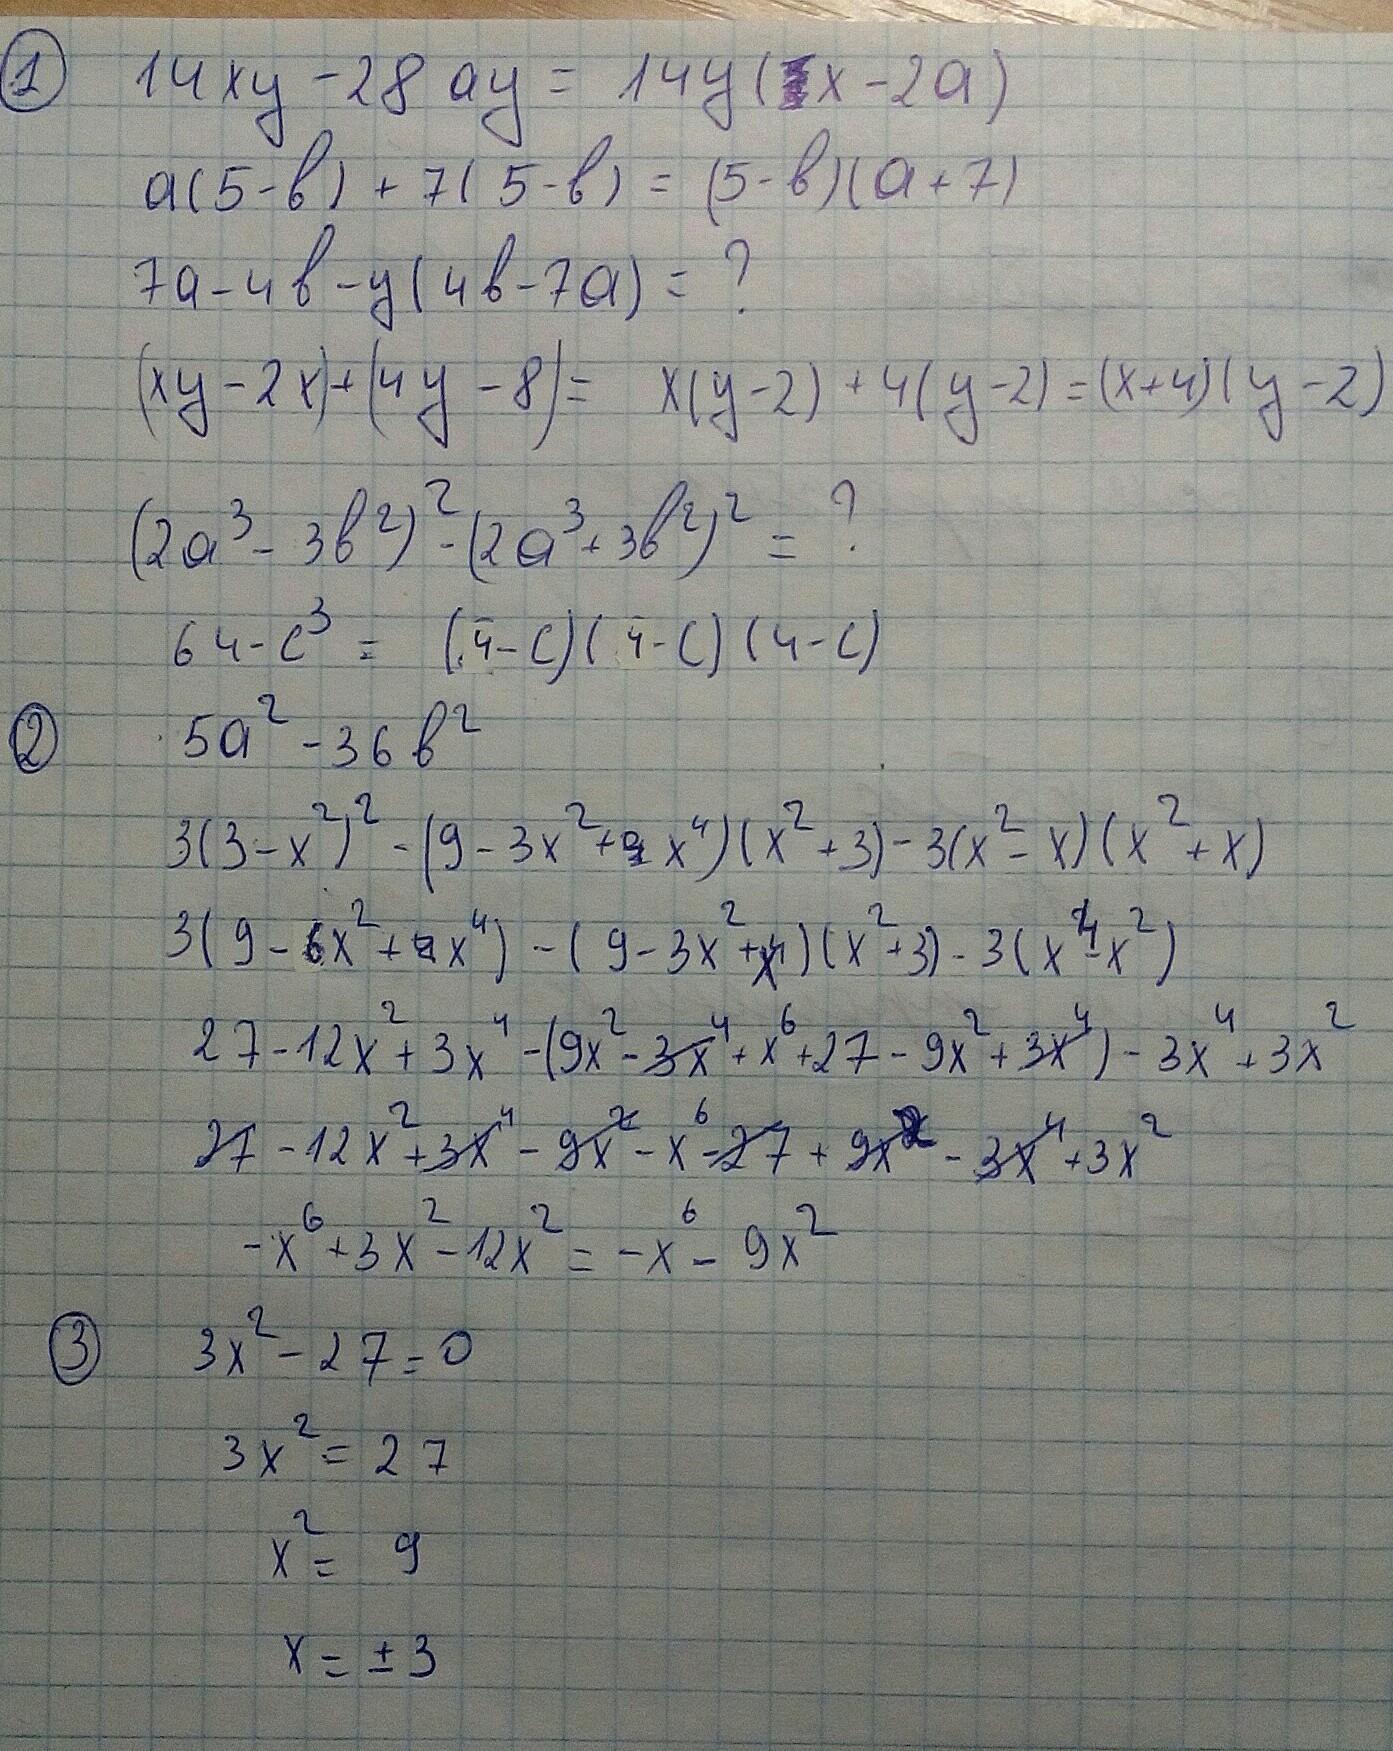 ① 14xy - 28ay = 14y(x - 2a)
a(5-b) + 7(5-b) = (5-b)(a+7)
7a - 4b - y(4b - 7a) = ?
(xy - 2x) + (4y - 8) = x(y-2) + 4(y-2) = (x+4)(y-2)
(2a³ - 3b²)² - (2a³ + 3b²)² = ?
64 - c³ = (4-c)(4-c)(4-c)
② 5a² - 36b²
3(3-x²)² - (9 - 3x² + x⁴)(x² + 3) - 3(x² - x)(x² + x)
3(9 - 6x² + x⁴) - (9 - 3x² + x⁴)(x² + 3) - 3(x⁴ - x²)
27 - 12x² + 3x⁴ - (9x² - 3x⁴ + x⁶ + 27 - 9x² + 3x⁴) - 3x⁴ + 3x²
27 - 12x² + 3x⁴ - 9x² - x⁶ - 27 + 9x² - 3x⁴ + 3x²
-x⁶ + 3x² - 12x² = -x⁶ - 9x²
③ 3x² - 27 = 0
3x² = 27
x² = 9
x = ±3